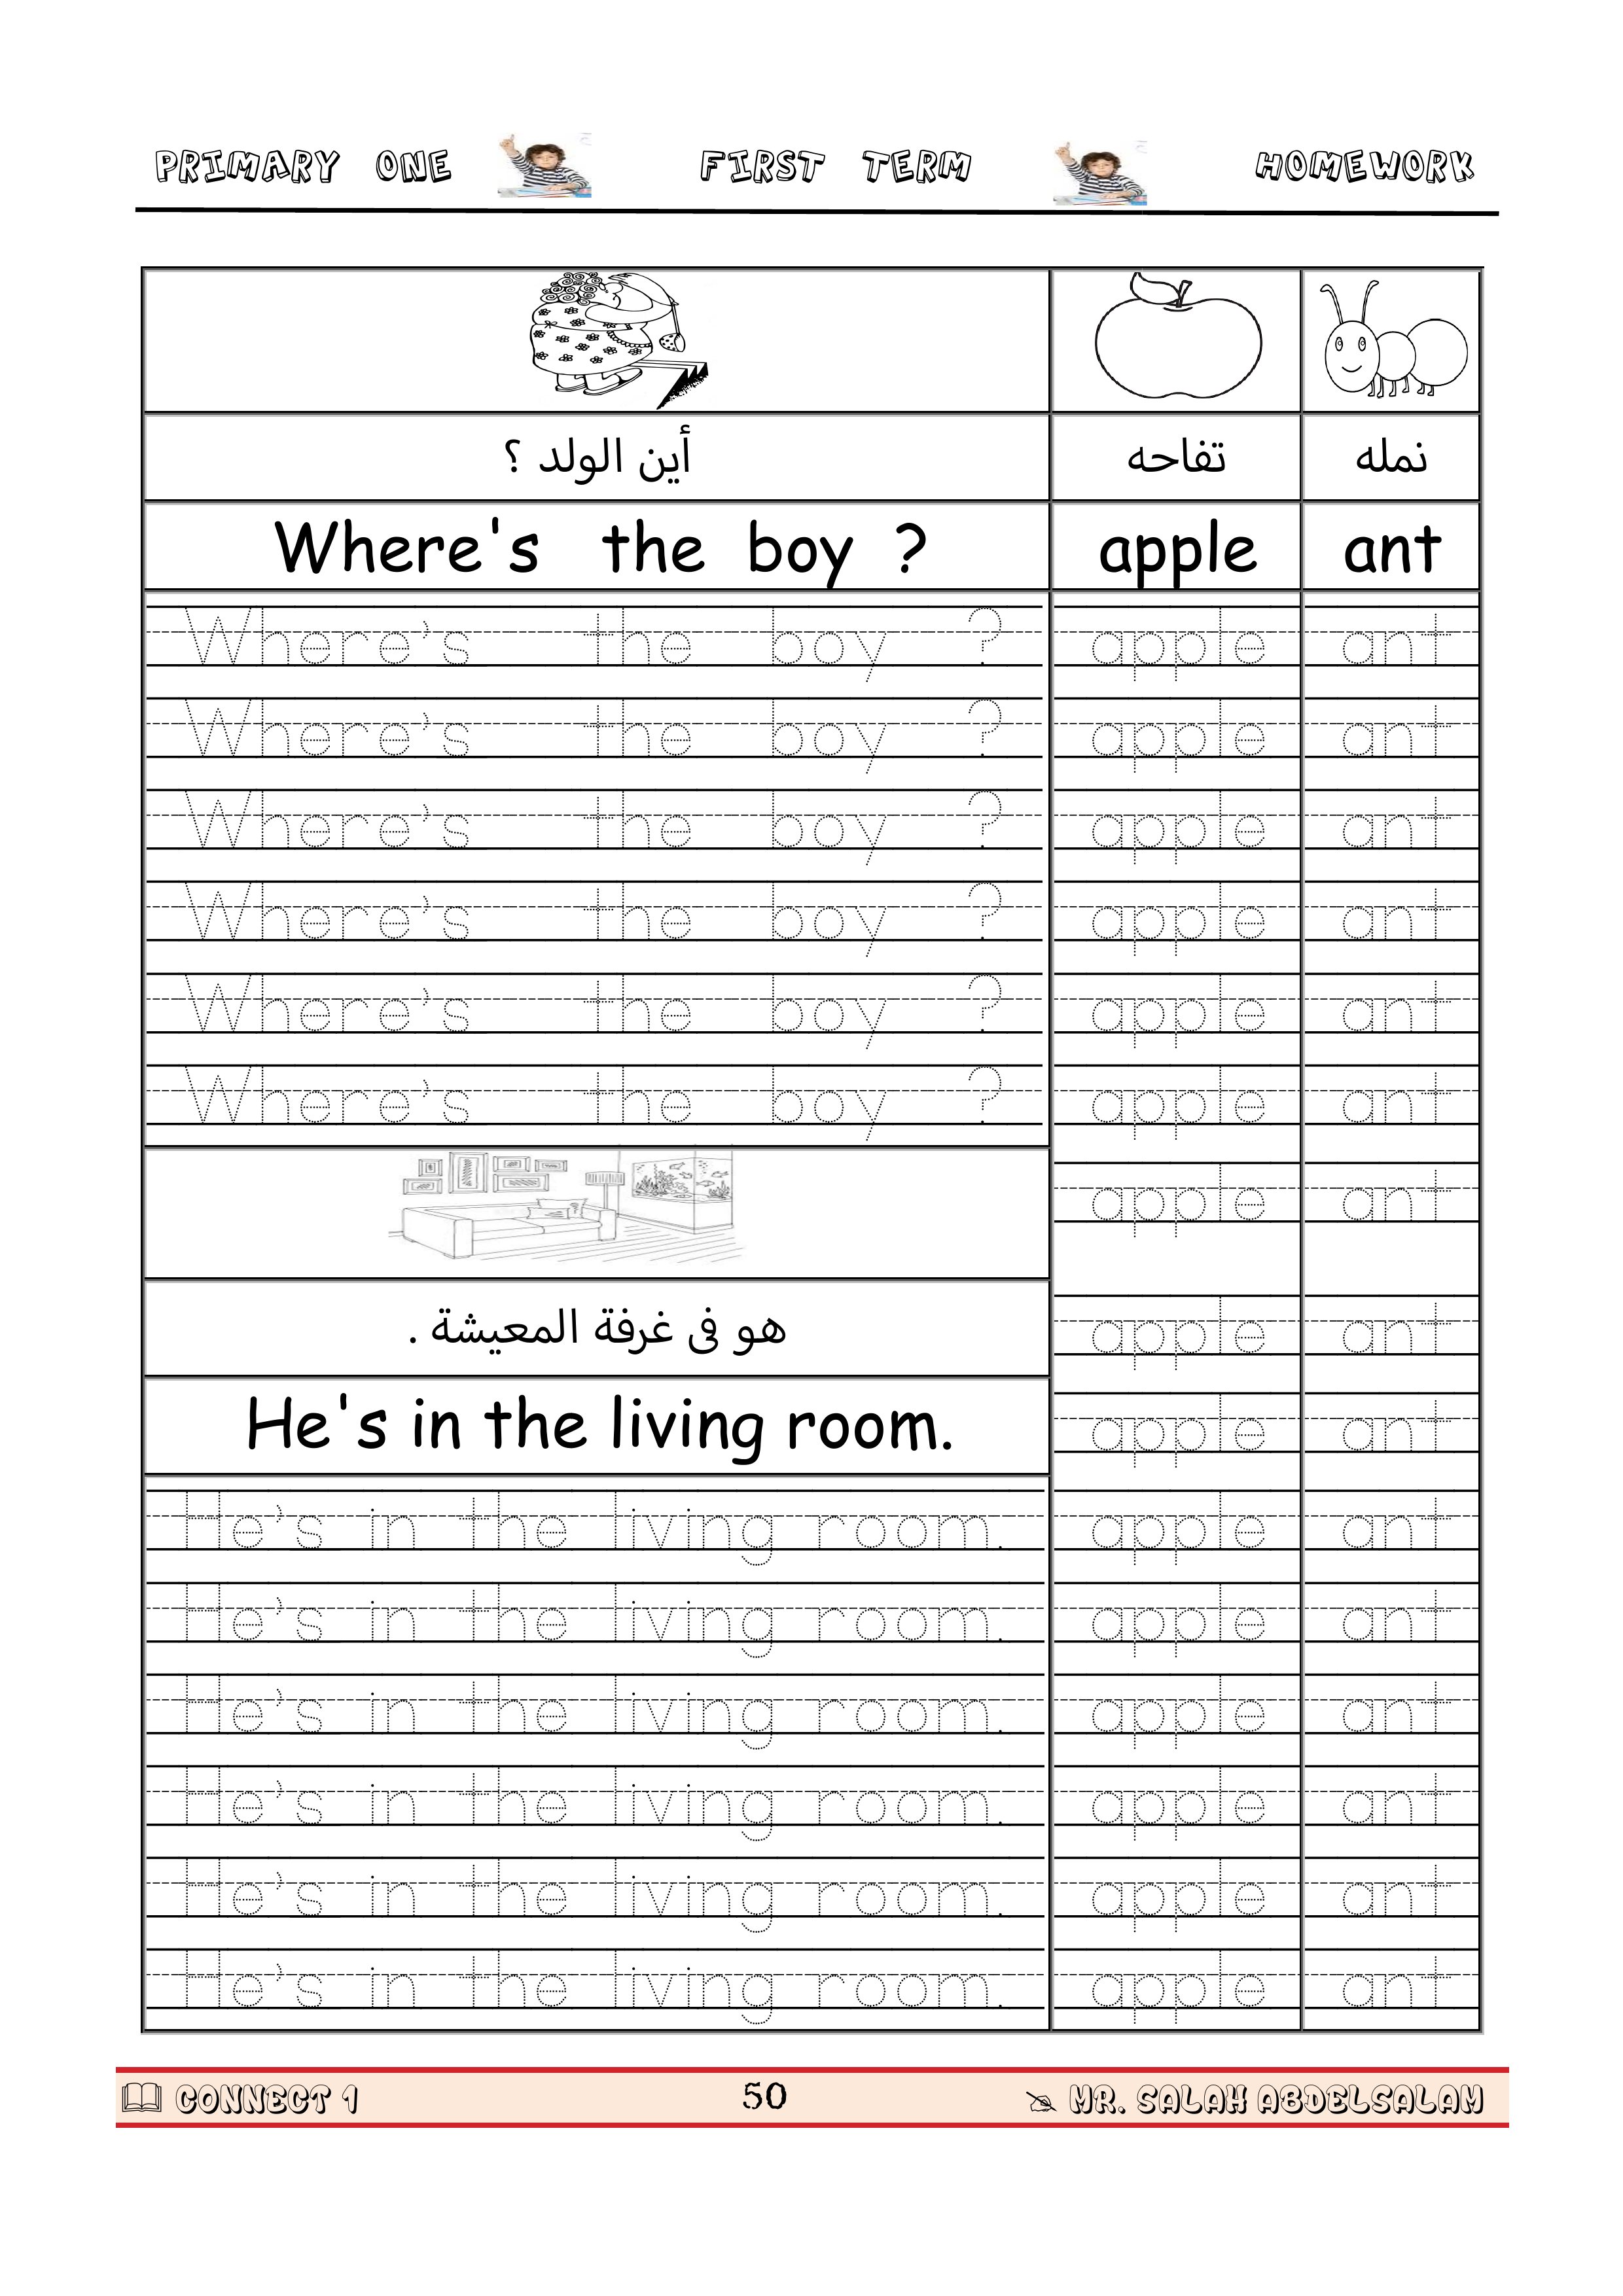 PRIMARY ONE FIRST TERM HOMEWORK
أين الولد ؟ تفاحه نمله
Where's the boy ? apple ant
Where's the boy ? apple ant
Where's the boy ? apple ant
Where's the boy ? apple ant
Where's the boy ? apple ant
Where's the boy ? apple ant
Where's the boy ? apple ant
apple ant
هو فى غرفة المعيشة . apple ant
He's in the living room. apple ant
He's in the living room. apple ant
He's in the living room. apple ant
He's in the living room. apple ant
He's in the living room. apple ant
He's in the living room. apple ant
He's in the living room. apple ant
CONNECT 1 50 MR. SALAH ABDELSALAM